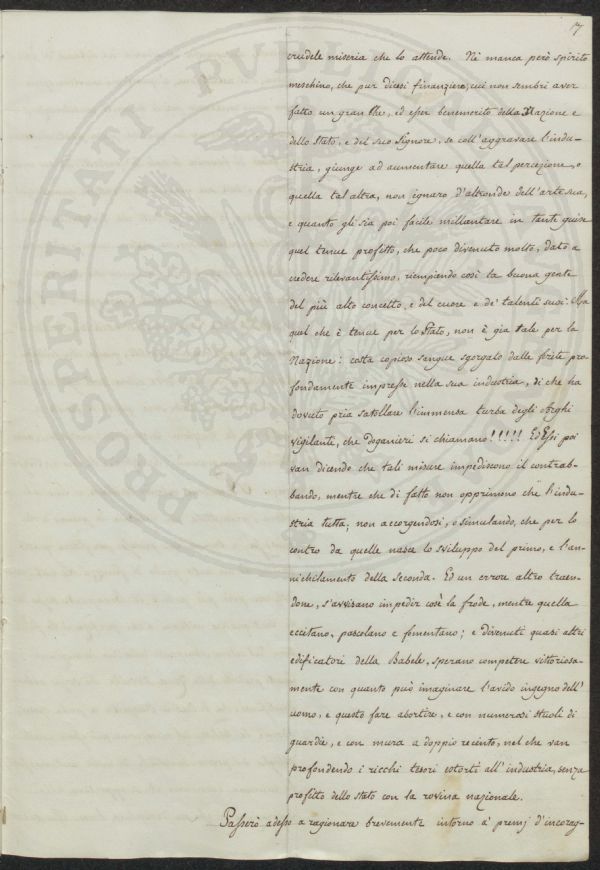 17
crudele miseria che lo attende. Nè manca però spirito
meschino, che pur dicesi finanziere, cui non sembri aver
fatto un gran che, ed esser benemerito della Nazione e
dello Stato, e del suo Signore, se coll'aggravare l'indu-
stria, giunge ad aumentare quella tal percezione, o
quella tal altra, non ignaro d'altronde dell'arte sua,
e quanto gli sia poi facile millantare in tante guise
quel tenue profitto, che poco divenuto molto, dato a
credere rilevantissimo, riempiendo così la buona gente
del più alto concetto, e del cuore e de' talenti suoi. Ma
quel che è tenue per lo Stato, non è già tale per la
Nazione: costa copioso sangue sgorgato dalle ferite pro-
fondamente impresse nella sua industria, di che ha
dovuto pria satollare l'immensa turba degli Arghi
vigilanti, che Doganieri si chiamano!!!!! Ed Essi poi
van dicendo che tali misure impediscono il contrab-
bando, mentre che di fatto non opprimono che l'indu-
stria tutta; non accorgendosi, o simulando, che per lo
contro da quelle nasce lo sviluppo del primo, e l'an-
nichilamento della seconda. Ed un errore altro traen-
done, s'avvisano impedir così la frode, mentre quella
eccitano, pascolano e fomentano; e divenuti quasi altri
edificatori della Babele, sperano competere vittoriosa-
mente con quanto può imaginare l'avido ingegno dell'
uomo, e questo fare abortire, e con numerosi stuoli di
guardie, e con mura a doppio recinto, nel che van
profondendo i ricchi tesori estorti all'industria, senza
profitto dello stato con la rovina nazionale.
Passerò adesso a ragionare brevemente intorno a' premj d'incorag-
PROSPERITATI PUBLICAE